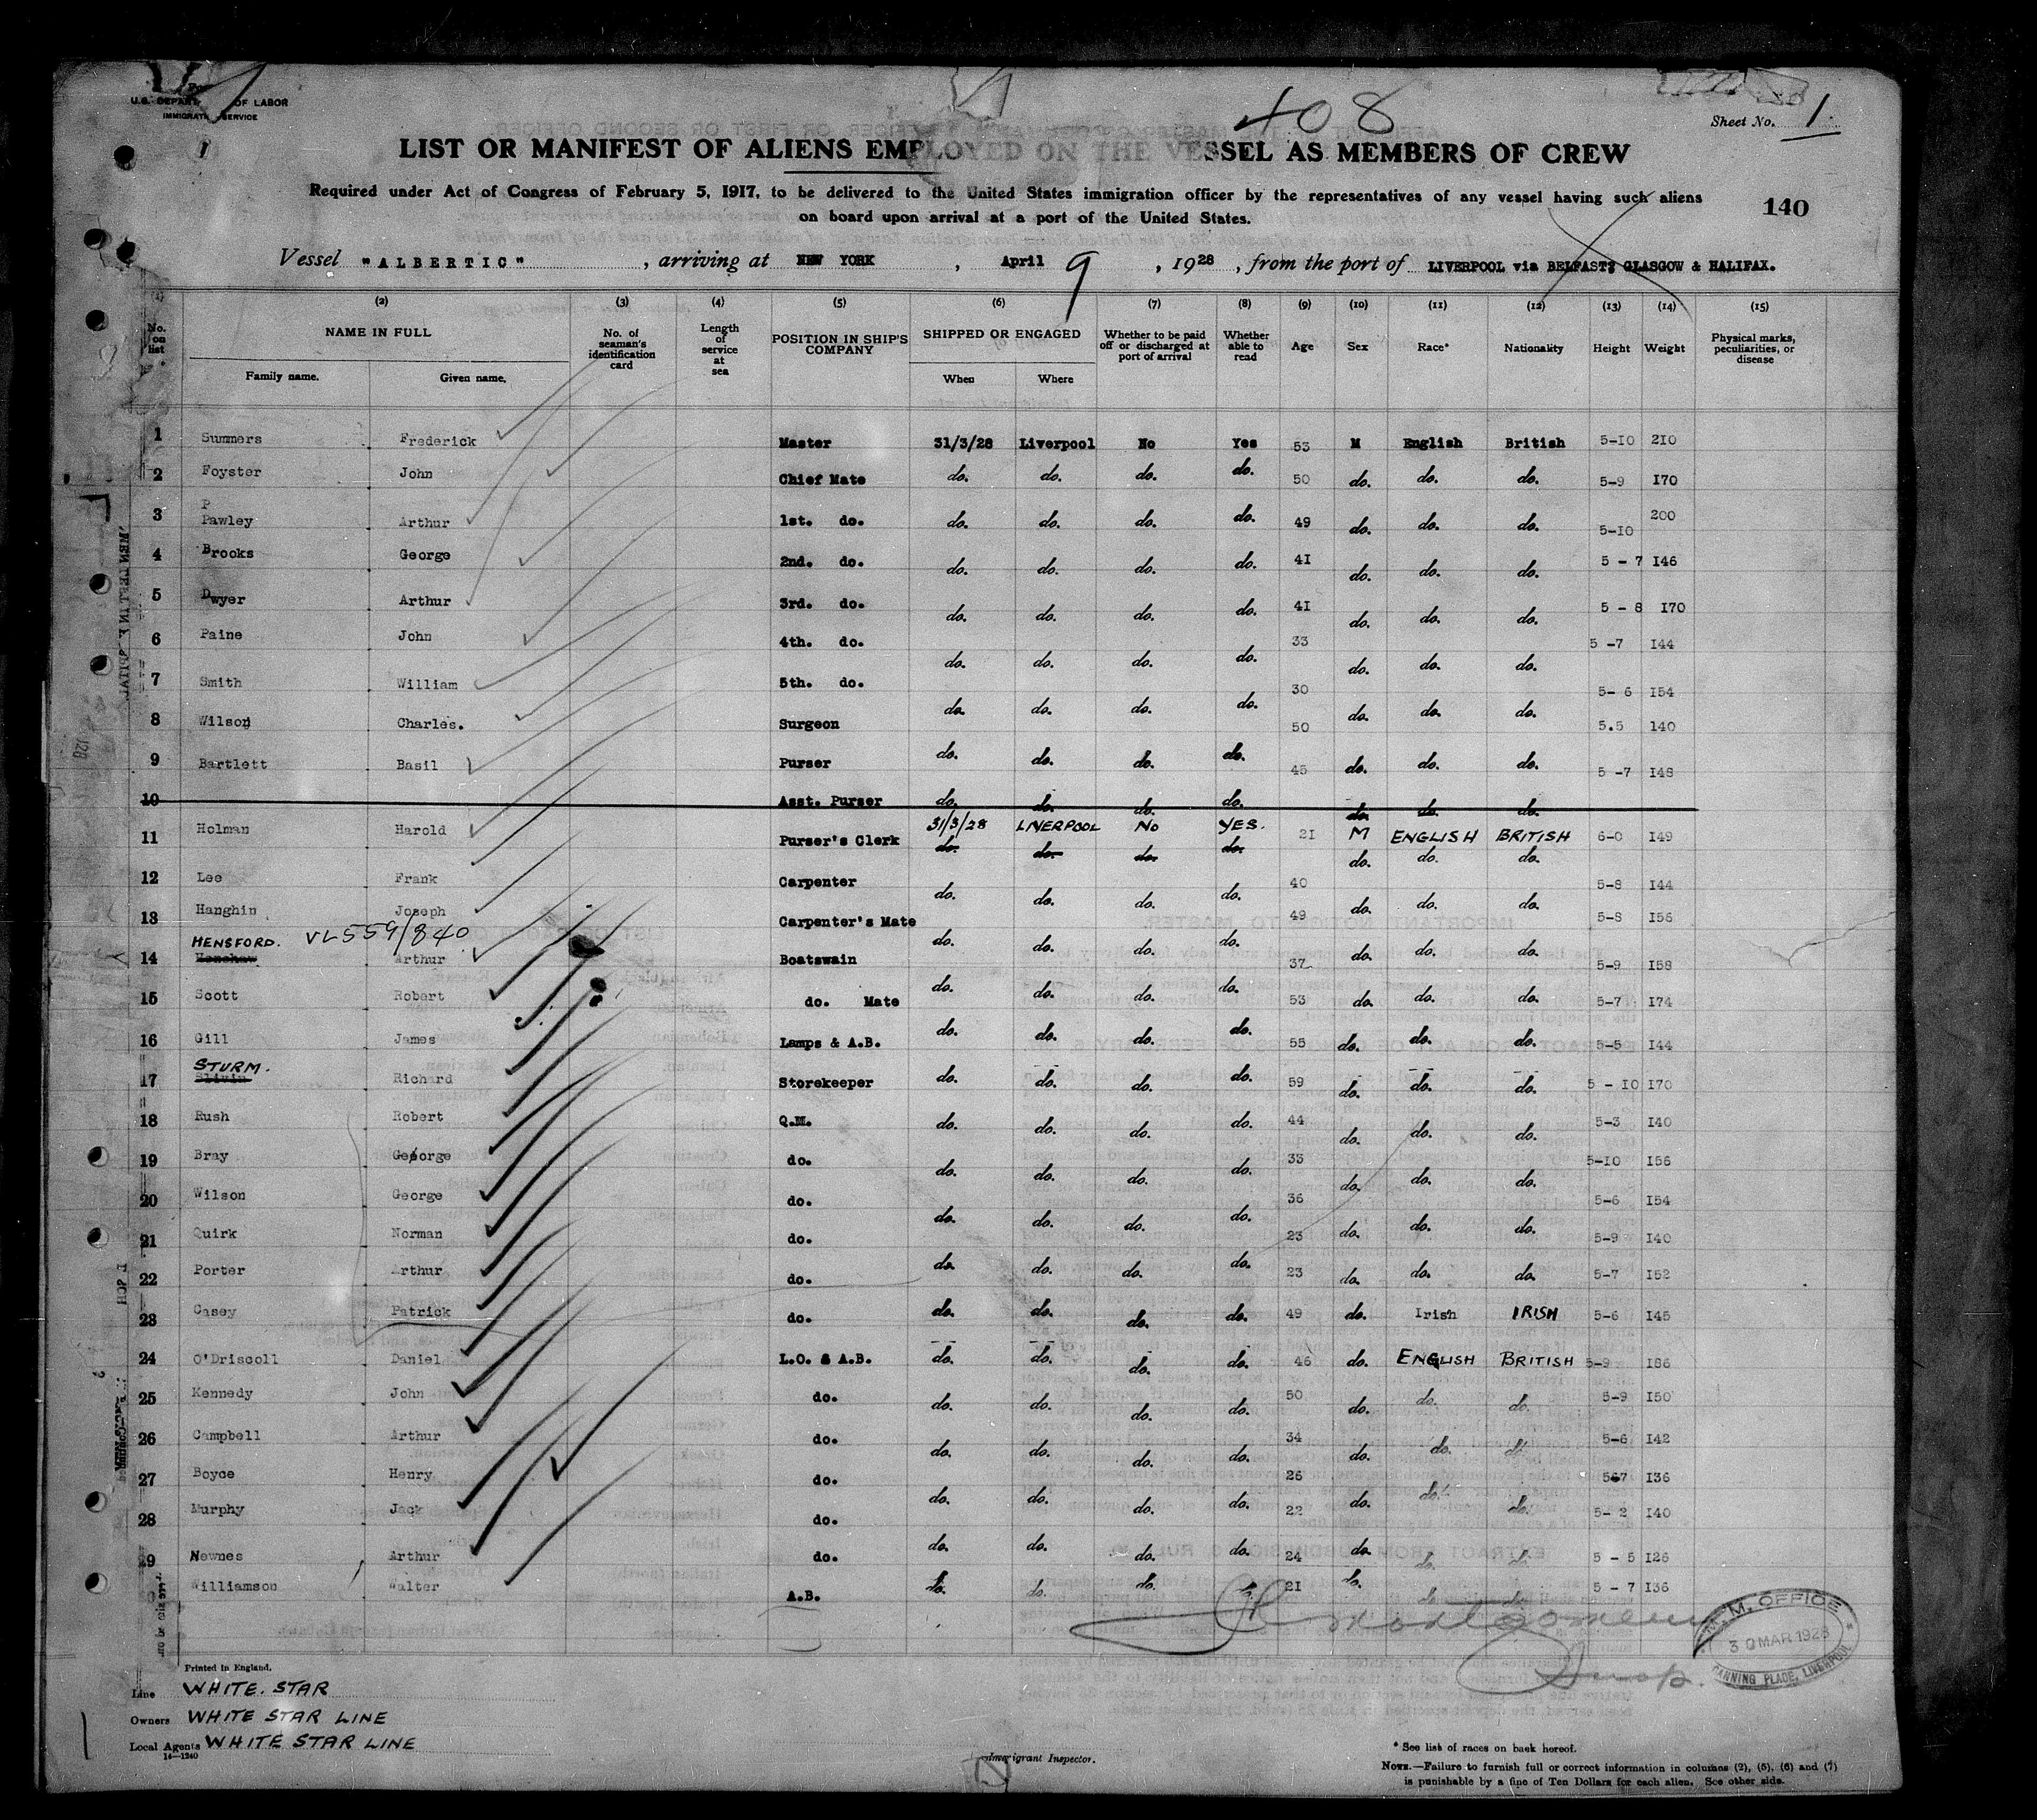 408
Sheet No. 1.
U.S. DEPARTMENT OF LABOR
IMMIGRATION SERVICE
1
LIST OR MANIFEST OF ALIENS EMPLOYED ON THE VESSEL AS MEMBERS OF CREW
Required under Act of Congress of February 5, 1917, to be delivered to the United States immigration officer by the representatives of any vessel having such aliens
on board upon arrival at a port of the United States.
140
Vessel "ALBERTIC", arriving at NEW YORK, April 9, 1928, from the port of LIVERPOOL via BELFAST, GLASGOW & HALIFAX.
(1) (2) (3) (4) (5) (6) (7) (8) (9) (10) (11) (12) (13) (14) (15)
No. on list NAME IN FULL No. of seaman's identification card Length of service at sea POSITION IN SHIP'S COMPANY SHIPPED OR ENGAGED Whether to be paid off or discharged at port of arrival Whether able to read Age Sex Race* Nationality Height Weight Physical marks, peculiarities, or disease
Family name. Given name. When Where
1 Summers Frederick Master 31/3/28 Liverpool No Yes 53 M English British 5-10 210
2 Foyster John Chief Mate do. do. do. do. 50 do. do. do. 5-9 170
P
3 Pawley Arthur 1st. do. do. do. do. do. 49 do. do. do. 5-10 200
4 Brooks George 2nd. do. do. do. do. do. 41 do. do. do. 5 - 7 146
5 Dwyer Arthur 3rd. do. do. do. do. do. 41 do. do. do. 5 - 8 170
6 Paine John 4th. do. do. do. do. do. 33 do. do. do. 5 -7 144
7 Smith William 5th. do. do. do. do. do. 30 do. do. do. 5- 6 154
8 Wilson Charles. Surgeon do. do. do. do. 50 do. do. do. 5.5 140
9 Bartlett Basil Purser do. do. do. do. 45 do. do. do. 5 -7 148
10 Asst. Purser do. do. do. do. do. do. do.
31/3/28 LIVERPOOL No YES. M ENGLISH BRITISH
11 Holman Harold Purser's Clerk do. do. do. do. 21 do. do. do. 6-0 149
12 Lee Frank Carpenter do. do. do. do. 40 do. do. do. 5-8 144
13 Hanghin Joseph Carpenter's Mate do. do. do. do. 49 do. do. do. 5-8 156
HENSFORD. VL559/840
14 Henshaw Arthur Boatswain do. do. do. do. 37 do. do. do. 5-9 158
15 Scott Robert do. Mate do. do. do. do. 53 do. do. do. 5-7 174
16 Gill James Lamps & A.B. do. do. do. do. 55 do. do. do. 5-5 144
STURM.
17 Richard Storekeeper do. do. do. do. 59 do. do. do. 5 - 10 170
18 Rush Robert Q.M. do. do. do. do. 44 do. do. do. 5-3 140
19 Bray George do. do. do. do. do. 33 do. do. do. 5-10 156
20 Wilson George do. do. do. do. do. 36 do. do. do. 5-6 154
21 Quirk Norman do. do. do. do. do. 23 do. do. do. 5-9 140
22 Porter Arthur do. do. do. do. do. 23 do. do. do. 5-7 152
23 Casey Patrick do. do. do. do. do. 49 do. Irish IRISH 5-6 145
24 O'Driscoll Daniel L.O. & A.B. do. do. do. do. 46 do. ENGLISH BRITISH 5-9 186
25 Kennedy John do. do. do. do. do. 50 do. do. do. 5-9 150
26 Campbell Arthur do. do. do. do. do. 34 do. do. do. 5-6 142
27 Boyce Henry do. do. do. do. do. 26 do. do. do. 5-7 136
28 Murphy Jack do. do. do. do. do. 22 do. do. do. 5- 2 140
29 Newnes Arthur do. do. do. do. do. 24 do. do. do. 5 - 5 126
Williamson Walter A.B. do. do. do. do. 21 do. do. do. 5 - 7 136
M.M. OFFICE
30 MAR 1928
CANNING PLACE, LIVERPOOL
Printed in England.
Line WHITE. STAR
Owners WHITE STAR LINE
Local Agents WHITE STAR LINE
14-1240
Immigrant Inspector.
* See list of races on back hereof.
NOTE.—Failure to furnish full or correct information in columns (2), (5), (6) and (7)
is punishable by a fine of Ten Dollars for each alien. See other side.